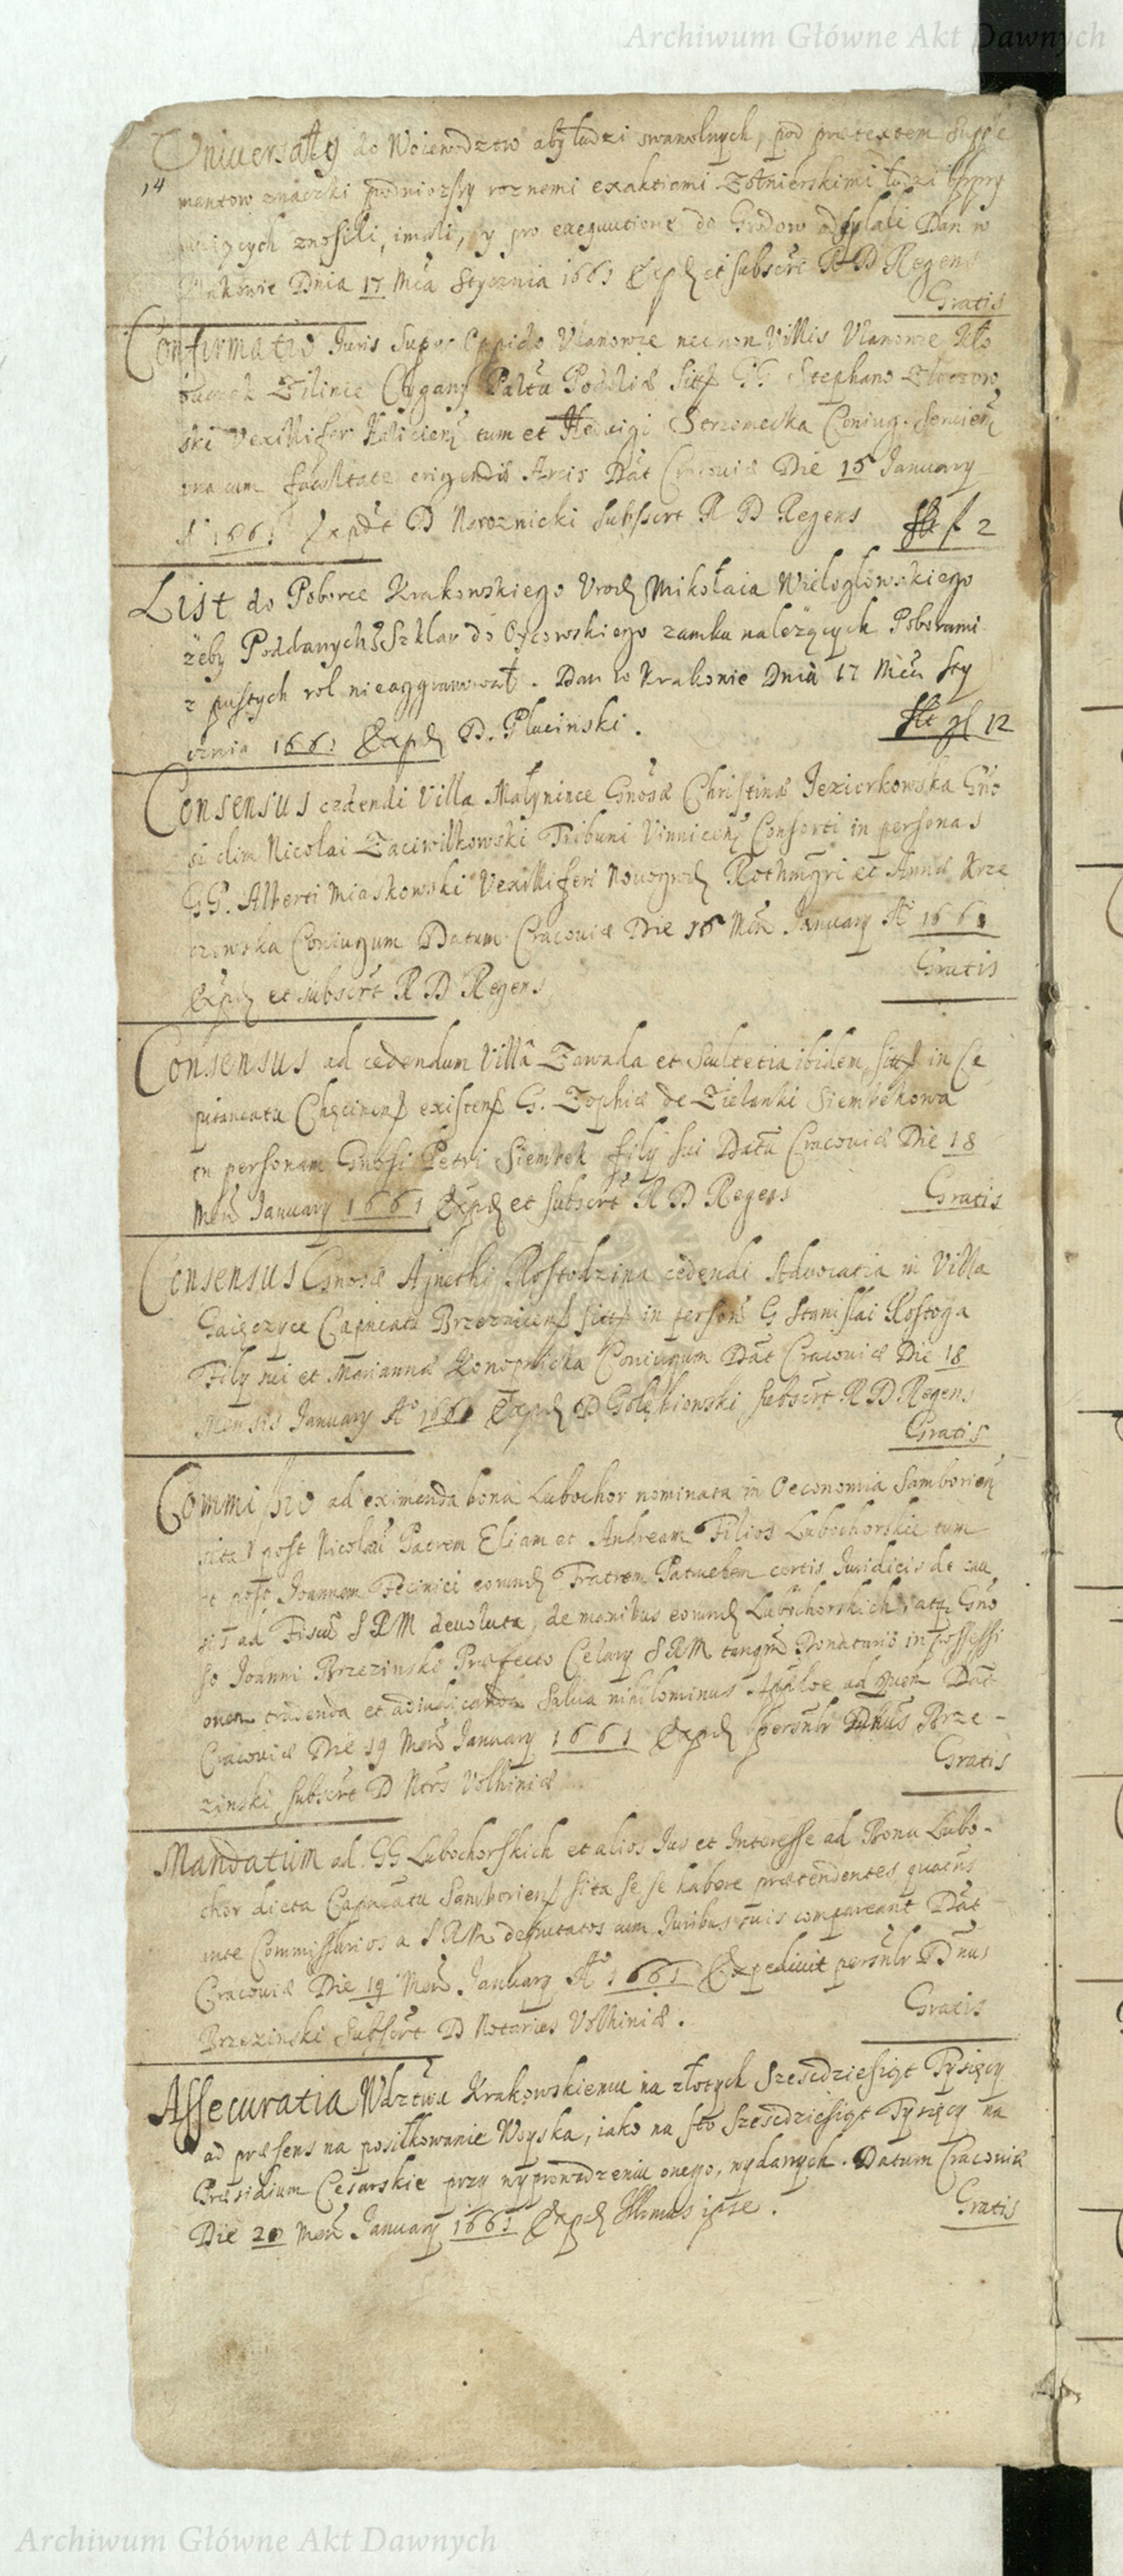 Archiwum Główne Akt Dawnych
Uniuersały do Woiewodztw aby ludzi swawolnych, pod praetextem Supple
14
mentow znaczki podniozszy roznemi exaktiami Zołnierskimi ludzi
znosili, imali, y pro exequutione do Grodow odsyłali Dan w
Krakowie Dnia 17 Mca Stycznia 1661 Exp et subscrt R D Regens
Gratis
Confirmatio Juris Super Oppido Vlanowce necnon Villis Vlanowce
Zilince Cygany Paltu Podoliæ sitis GG Stephano
ski Vexillifer Halicien tum et Hedvigi Strzemecka Coniug.
cum facultate erigendæ Arcis Dat Cracouiæ Die 15 January
A 1661 Expdt D Noroznicki subscrt R D Regens
f 2
List do Poborce Krakowskiego Urodz Mikołaia Wielogłowskiego
żeby Poddanych z Szklar do Oycowskiego zamku należących Poborami
z pustych rol nieaggrawował. Dan w Krakowie Dnia 17 Mca Sty
cznia 1661 Exped D. Plucinski.
zł 12
Consensus cedendi Villa Małynince Gnosæ Christinæ Jeziorkowska Gno
si olim Nicolai Zaciwilkowski Tribuni Vinnicen Consorti in personas
GG. Alberti Miaskowski Vexilliferi Nouogrod Rothmgri et Annæ Krze
czowska Coniugum Datum Cracouiæ Die 15 Men January Ao 1661
Gratis
Exped et subscrt R D Regens
Consensus ad cedendum Villa Zawada et Scultetia ibidem sitis in Ca
pitaneatu Chęcinens existens G. Zophiæ de Zielanki Siembekowa
in personam Gnosi Petri Siembek filij sui Datu Cracouiæ Die 18
Men January 1661 Exped et subscrt R D Regens
Gratis
Consensus Gnosæ Agnethi Rostodzina cedendi Aduocatia in Villa
Gaięczyce Capneatu Brzeznicens sitis in person G Stanislai Rostoga
Filij sui et Mariannæ Konopnicka Coniugum Dat Cracouiæ Die 18
Mensis January Ao 1661 Exped D Gołękiowski subscrt R D Regens
Gratis
Commissio ad eximenda bona Lubochor nominata in Oeconomia Samborien
sita post Nicolai Patrem Eliam et Andream Filios Lubochorskie tum
et post Joannem Fecinici eorund Fratrem Patruelem certis Juridicis de cau
sis ad Fiscu SRM deuoluta, de manibus eorund Lubochorskich, atq Gno
so Joanni Brzezinski Præfecto Celary SRM tanqm Donatario in possessi
onem tradenda et adiudicanda salua nihilominus ad quem Dat
Cracouiæ Die 19 Men January 1661 Exped personlr Dnus Brze-
Gratis
zinski subscrt D Ntrs Volhiniæ
Mandatum ad GG Lubochorskich et alios Jus et Interesse ad Bona Lubo-
chor dicta Capneatu Samboriens sita se se habere prætendentes, quatens
ante Commissarios a SRM deputatos cum Juribus suis compareant Dat
Cracouiæ Die 19 Men January Ao 1661 Expediuit personlr Dnus
Gratis
Brzezinski subscrt D Notarius Volhiniæ.
Assecuratia Wdztwu Krakowskiemu na złotych Szescdziesiąt Tysięcy
ad præsens na posiłkowanie Woyska, iako na sto Szescdziesiąt Tysięcy na
Præsidium Cesarskie przy wyprowadzeniu onego, wydanych. Datum Cracouiæ
Die 20 Men January 1661 Exped Illmus ipse.
Gratis
Archiwum Główne Akt Dawnych